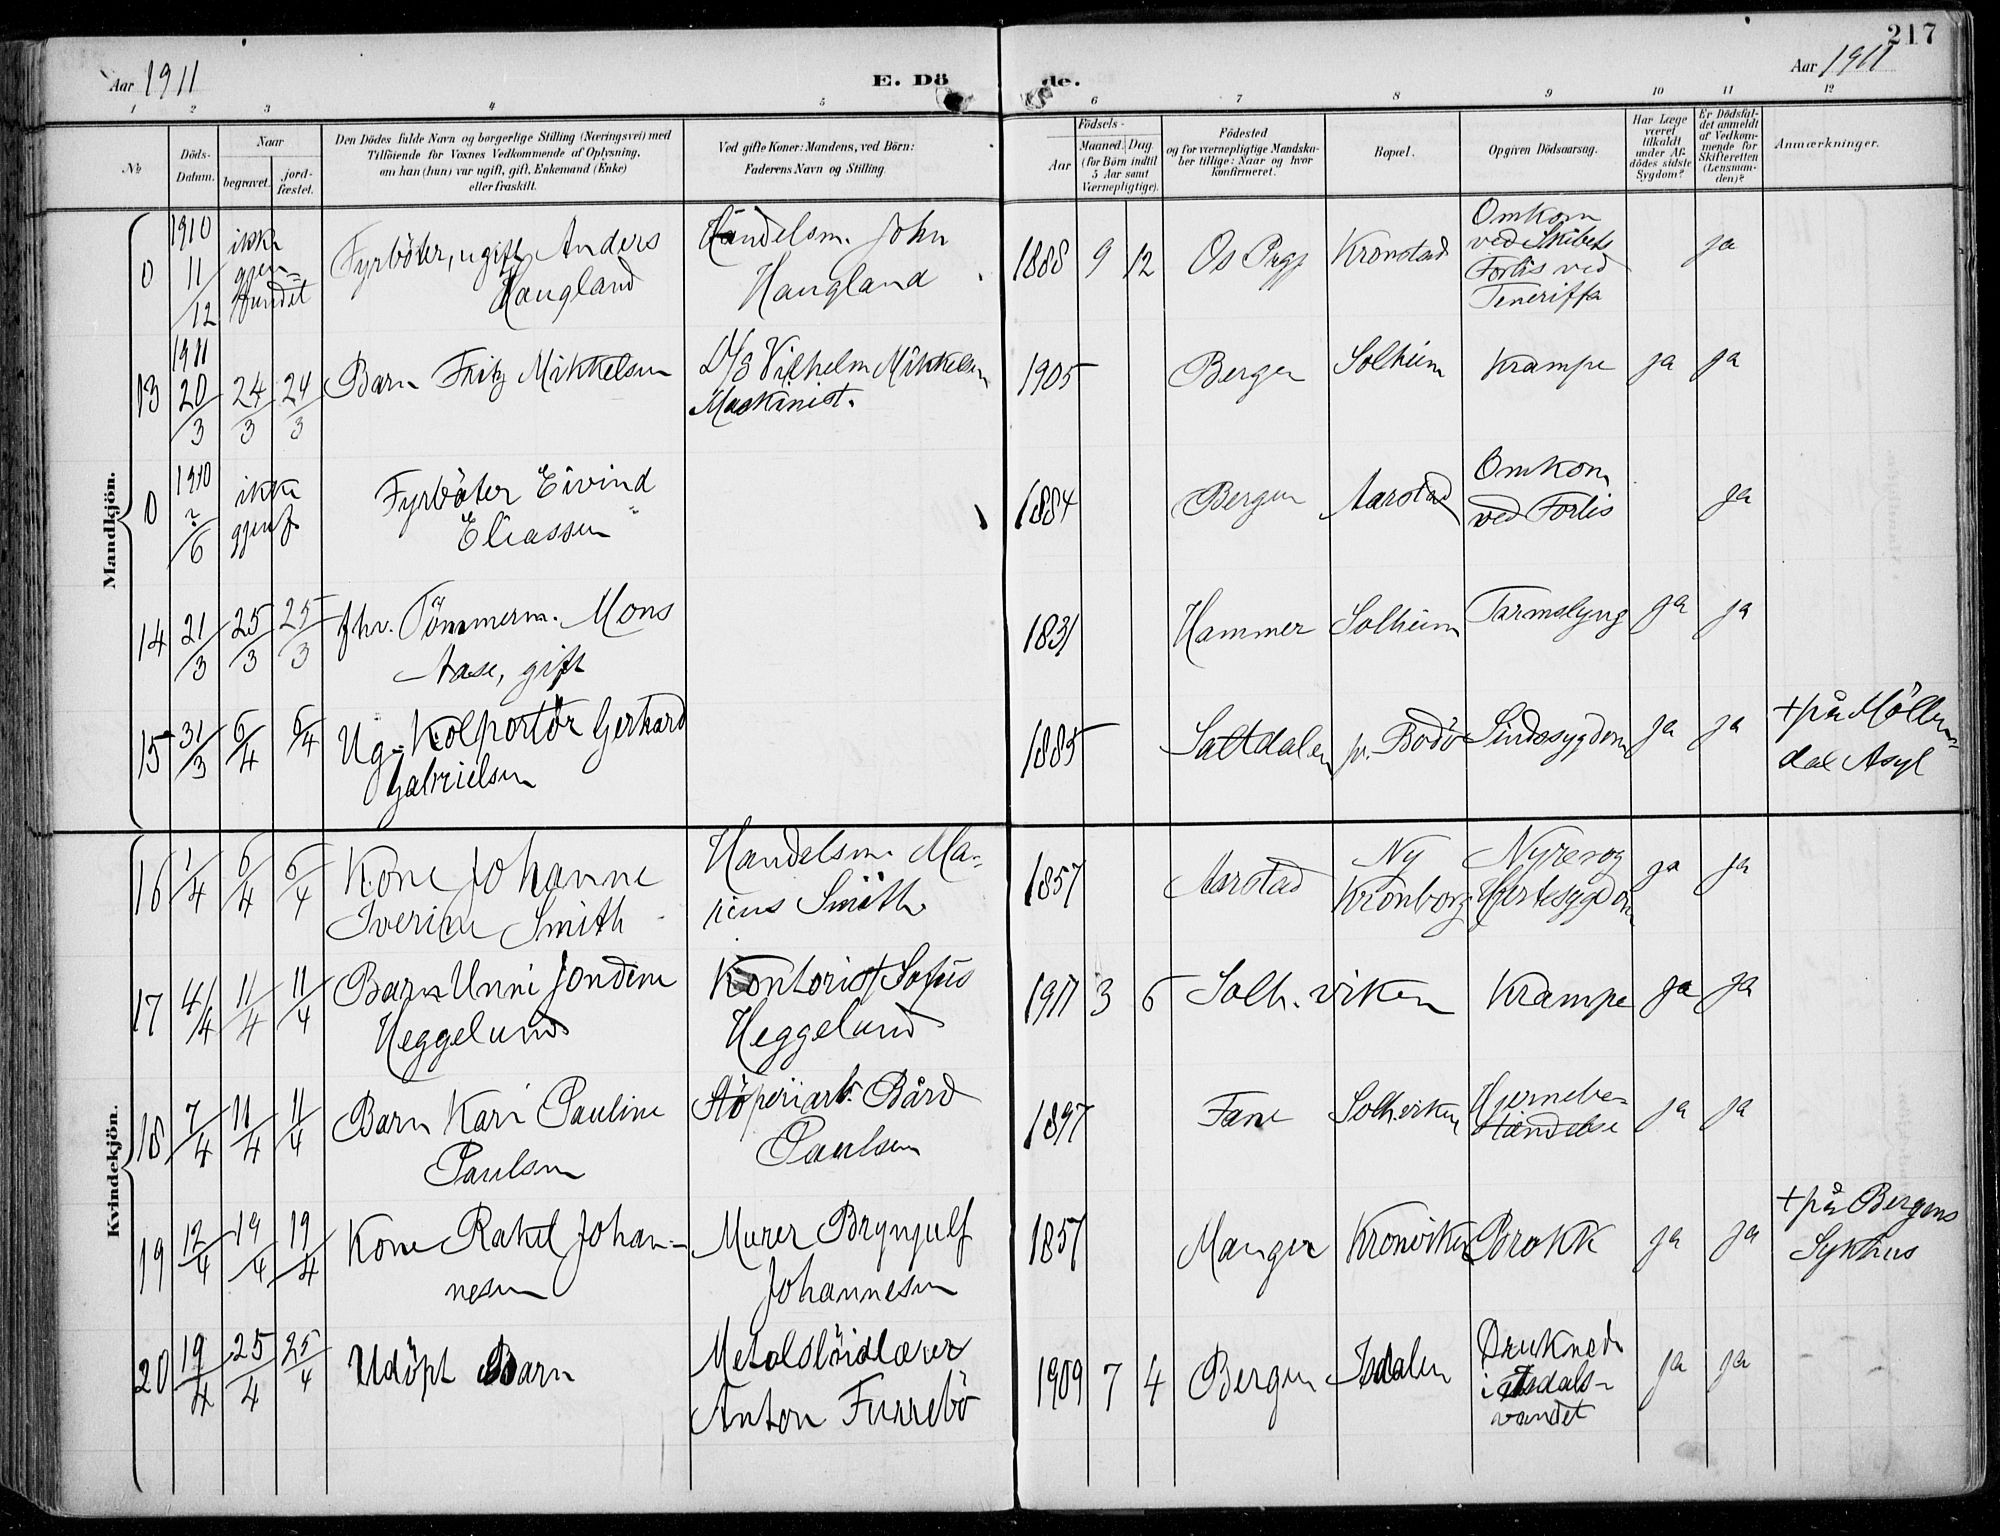 217
Aar 1911
E. Dö
de.
Aar 1911
1 2 3 4 5 6 7 8 9 10 11 12
№
Döds-Datum.
Naar
begravet.
jord-fæstet.
Den Dödes fulde Navn og borgerlige Stilling (Næringsvei) med
Tilföiende for Voxnes Vedkommende af Oplysning,
om han (hun) var ugift, gift, Enkemand (Enke)
eller fraskilt.
Ved gifte Koner: Mandens, ved Börn:
Faderens Navn og Stilling.
Födsels-
Aar
Maaned. Dag
(for Börn indtil
5 Aar samt
Værnepligtige).
Födested
og for værnepligtige Mandska-
ber tillige: Naar og hvor
konfirmeret.
Bopæl.
Opgiven Dödsaarsag.
Har Læge
været
tilkaldt
under Af-
dødes sidste
Sygdom?
Er Dödsfal-
det anmeldt
af Vedkom-
mende for
Skifteretten
(Lensman-
den)?
Anmærkninger.
Mandkjön.
0 1910 11/12 ikke gjen-fundet
Fyrböter, ugift Anders
Haugland
Handelsm. John
Haugland
1888 9 12 Os Kronstad
Omkom
ved Skibets
Forlis ved
Teneriffa
ja
13 1911 20/3 24/3 24/3
Barn Fritz Mikkelsen
Vilhelm Mikkelsen
Maskinist.
1905 Bergen Solheim Krampe ja ja
0 1910 ?/6 ikke gjenf
Fyrböter Eivind
Eliassen
1884 Bergen Aarstad
Omkom
ved Forlis
ja
14 21/3 25/3 25/3
fhv. Tömmerm. Mons
Aase, gift
1831 Hammer Solheim Tarmslyng ja ja
15 31/3 6/4 6/4
Ug. Kolportör Gerhard
Gabrielsen
1885 Saltdalen pr. Bodö Sindssygdom ja ja
+ på Möllen-
dal Asyl
Kvindekjön.
16 1/4 6/4 6/4
Kone Johanne
Iverine Smith
Handelsm. Ma-
rius Smith
1857 Aarstad
Ny
Kronborg
Nyre og
Hjertesygdom
ja ja
17 4/4 11/4 11/4
Barn Unni Jondine
Heggelund
Kontorist Sofus
Heggelund
1911 3 6 Solh. viken Krampe ja ja
18 7/4 11/4 11/4
Barn Kari Pauline
Paulsen
Stöperiarb. Bård
Paulsen
1897 Fane Solh.viken
Hjernebe-
tændelse
ja ja
19 12/4 19/4 19/4
Kone Rakel Johan-
nesen
Murer Brynjulf
Johannesen
1857 Manger Kronviken Brokk ja ja
+ på Bergens
Sykhus
20 19/4 25/4 25/4
Udöpt Barn
Metalslöidlærer
Anton Furrebö
1909 7 4 Bergen Isdalen
Druknede
i Isdals-
vandet
ja ja